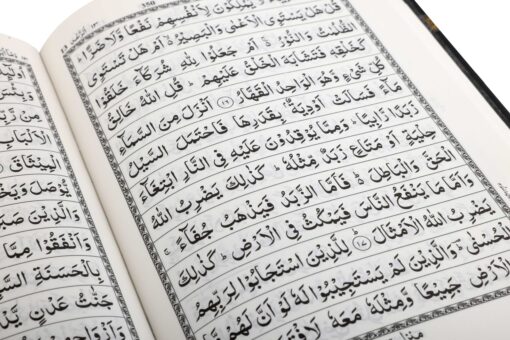 350
يَمْلِكُوْنَ لِاَنْفُسِهِمْ نَفْعًا وَّلَا ضَرًّا ؕ
قُلْ هَلْ يَسْتَوِى الْاَعْمٰى وَالْبَصِيْرُ ۙ اَمْ هَلْ تَسْتَوِى
الظُّلُمٰتُ وَالنُّوْرُ ۚ اَمْ جَعَلُوْا لِلّٰهِ شُرَكَآءَ خَلَقُوْا
كَخَلْقِهٖ فَتَشَابَهَ الْخَلْقُ عَلَيْهِمْ ؕ قُلِ اللّٰهُ خَالِقُ
كُلِّ شَىْءٍ وَّهُوَ الْوَاحِدُ الْقَهَّارُ ﴿١٦﴾ اَنْزَلَ مِنَ السَّمَآءِ
مَآءً فَسَالَتْ اَوْدِيَةٌۢ بِقَدَرِهَا فَاحْتَمَلَ السَّيْلُ
زَبَدًا رَّابِيًا ؕ وَمِمَّا يُوْقِدُوْنَ عَلَيْهِ فِى النَّارِ ابْتِغَآءَ
حِلْيَةٍ اَوْ مَتَاعٍ زَبَدٌ مِّثْلُهٗ ؕ كَذٰلِكَ يَضْرِبُ اللّٰهُ
الْحَقَّ وَالْبَاطِلَ ؕ فَاَمَّا الزَّبَدُ فَيَذْهَبُ جُفَآءً ۚ
وَاَمَّا مَا يَنْفَعُ النَّاسَ فَيَمْكُثُ فِى الْاَرْضِ ؕ كَذٰلِكَ
يَضْرِبُ اللّٰهُ الْاَمْثَالَ ﴿١٧﴾ لِلَّذِيْنَ اسْتَجَابُوْا لِرَبِّهِمُ
الْحُسْنٰى ؔؕ وَالَّذِيْنَ لَمْ يَسْتَجِيْبُوْا لَهٗ لَوْ اَنَّ لَهُمْ مَّا
الْاَرْضِ جَمِيْعًا وَّمِثْلَهٗ مَعَهٗ لَافْتَدَوْا
اُولٰٓئِكَ
مِنْ رَّبِّكَ
الْاَلْبَابِ
الْمِيْثَاقَ
يُّوْصَلَ وَيَخْشَوْنَ
وَالَّذِيْنَ صَبَرُوا
وَاَنْفَقُوْا مِمَّا
بِالْحَسَنَةِ السَّيِّئَةَ
جَنّٰتُ عَدْنٍ
وَاَزْوَاجِهِمْ